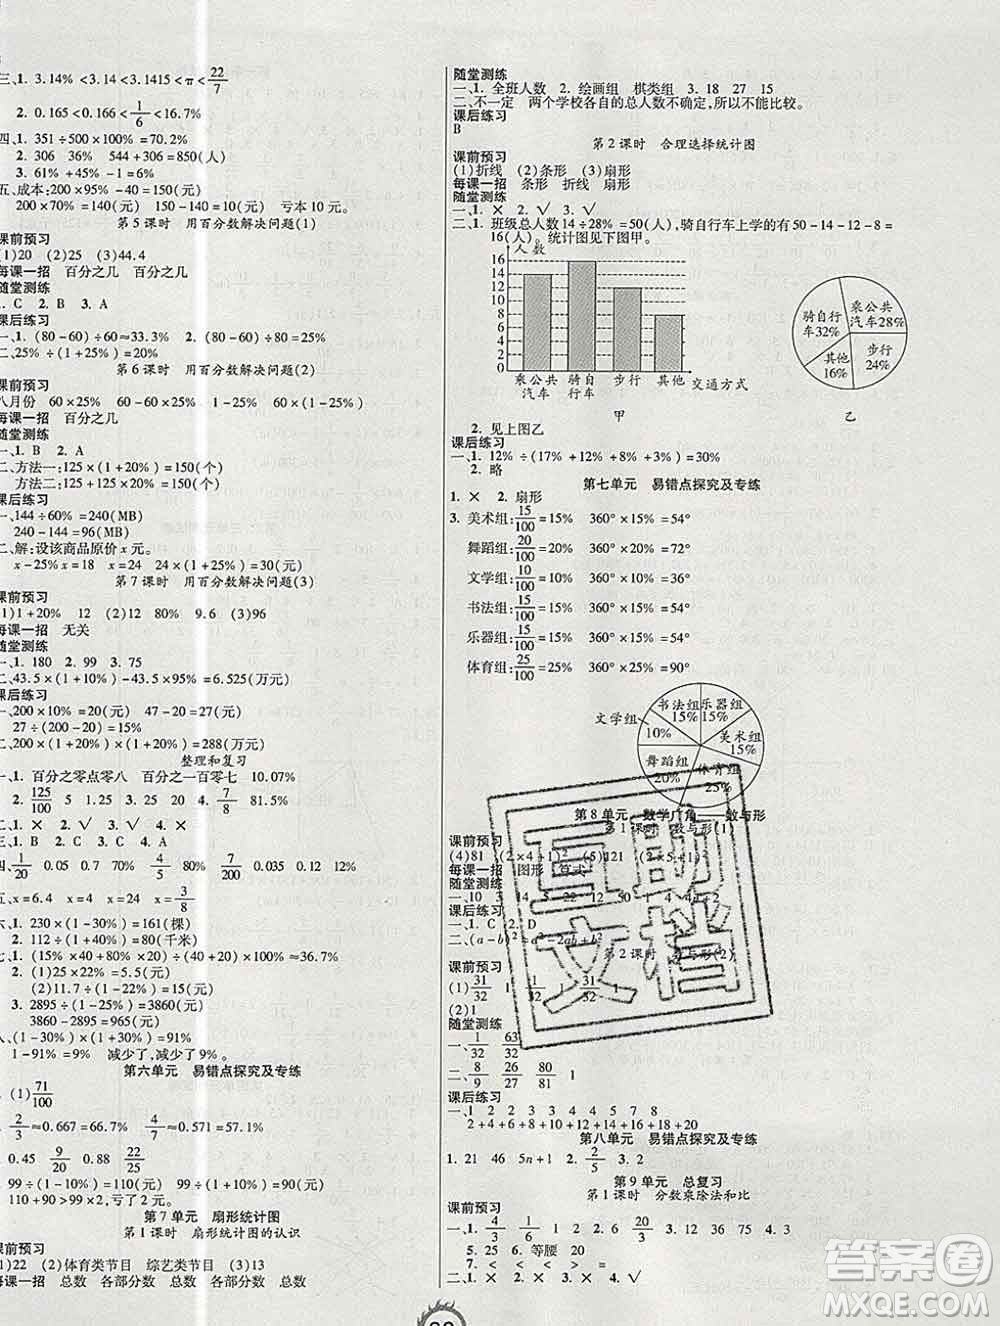 三、1. 3.14% <3.14<3.1415<π<22/7
2. 0.167 <0.166<1/6<16.7%
四、1. 351÷500×100%=70.2%
2. 306 36% 544+306=850(人)
3. 61% 45% -1=6%
五、成本:200×95% -40=150(元)
200×70% =140(元) 150-140=10(元) 亏本10元。
第5课时 用百分数解决问题(1)
课前预习
(1)20 (2)25 (3)44.4
每课一招 百分之几 百分之几
随堂测练
1. C 2. B 3. A
课后练习
一、1. (80-60)÷60≈33% 2. (80-60)÷80=25%
二、25% ÷(1+25%)=20%
第6课时 用百分数解决问题(2)
课前预习
八月份 60×25% 60-60×25% 60×(1-25%)
每课一招 百分之几
随堂测练
一、1. B 2. A
二、方法一:125×(1+20%)=150(个)
方法二:125+125×20% =150(个)
课后练习
一、144÷60% =240(MB)
240-144=96(MB)
二、解:设该商品原价x元。
x-25%x=18 x=24 24×(1+25%)=30(元)
第7课时 用百分数解决问题(3)
课前预习
(1)1+20% 12 (2)12 80% 9.6 (3)96
每课一招 无关
随堂测练
一、1. 180 2. 99 3. 75
二、43.5×(1+10%)-43.5×95% =6.525(万元)
课后练习
一、200×10% =20(元) 47-20=27(元)
27÷(200-20)=15%
二、200×(1+20%)×(1+20%)=288(万元)
整理和复习
一、1. 百分之零点零八 百分之一百零七 10.07%
2. 125/100 5 1.25 3. 25 20 4. 7/8 81.5%
二、1. × 2. √ 3. √ 4. ×
四、1/20 0.05 0.7 70% 4/5 80% 7/200 0.035 0.12 12%
五、x=6.4 x=4 x=24 x=3/8
六、1. 230×(1-30%)=161(棵)
2. 112÷(1+40%)=80(千米)
七、1. (15%×40+20%×50)÷(40+50)≈17.8%
2. (1)25×(1-22%)=5.5(元)
(2)11.7÷(1-22%)=15(元)
3. 2895÷(1-25%)=3860(元)
3860-2895=965(元)
八、(1-30%)×(1+30%)=91%
1-91%=9% 减少了,减少了9%。
第六单元 易错点探究及专练
1. (1)71/100
2/3≈0.667=66.7% 4/7≈0.571=57.1%
0.45 9/20 0.88 22/25
99÷(1-10%)=110(元) 99÷(1+10%)=90(元)
110+90>99×2,亏了2元。
第7单元 扇形统计图
第1课时 扇形统计图的认识
课前预习
(1)22 (2)体育类节目 综艺类节目 (3)13
每课一招 总数 各部分数 总数 各部分数 总数
随堂测练
一、1. 全班人数 2. 绘画组 棋类组 3. 18 27 15
二、不一定 两个学校各自的总人数不确定,所以不能比较。
课后练习
B
第2课时 合理选择统计图
课前预习
(1)折线 (2)条形 (3)扇形
每课一招 条形 折线 扇形
随堂测练
一、1. × 2. √ 3. √
二、1. 班级总人数14÷28% =50(人),骑自行车上学的有50-14-12-8=
16(人)。统计图见下图甲。
人数
16
14
12
10
8
6
4
2
0
乘公共汽车 骑自行车 步行 其他 交通方式
甲
骑自行车32% 乘公共汽车28%
其他16% 步行24%
乙
2. 见上图乙
课后练习
一、1. 12% ÷(17% +12% +8% +3%)=30%
2. 略
第七单元 易错点探究及专练
1. × 2. 扇形
3. 美术组:15/100=15% 360°×15%=54°
舞蹈组:20/100=20% 360°×20%=72°
文学组:10/100=10% 360°×10%=36°
书法组:15/100=15% 360°×15%=54°
乐器组:15/100=15% 360°×15%=54°
体育组:25/100=25% 360°×25%=90°
文学组10% 书法组15% 乐器组15%
美术组15%
舞蹈组20% 体育组25%
第8单元 数学广角——数与形
第1课时 数与形(1)
课前预习
(4)81 (2×4+1)² (5)121 (2×5+1)²
每课一招 图形 算式
随堂测练
课后练习
一、1. C 2. D
二、(a-b)²=a²-2ab+b²
第2课时 数与形(2)
课前预习
(1)31/32 1 31/32
(2)1
随堂测练
一、1/32 1/32 63/64
二、8/9
课后练习
一、1 2 3 4 5 6 7 8
2+4+6+8+10+12+14+16+18+20
第八单元 易错点探究及专练
1. 21 46 5n+1 2. 2/5 3. 2
第9单元 总复习
第1课时 分数乘除法和比
课前预习
5. 25 6. 等腰 20
7. < < < >
二、1. × 2. × 3. √
互助文档
答案圈
MXQE.COM